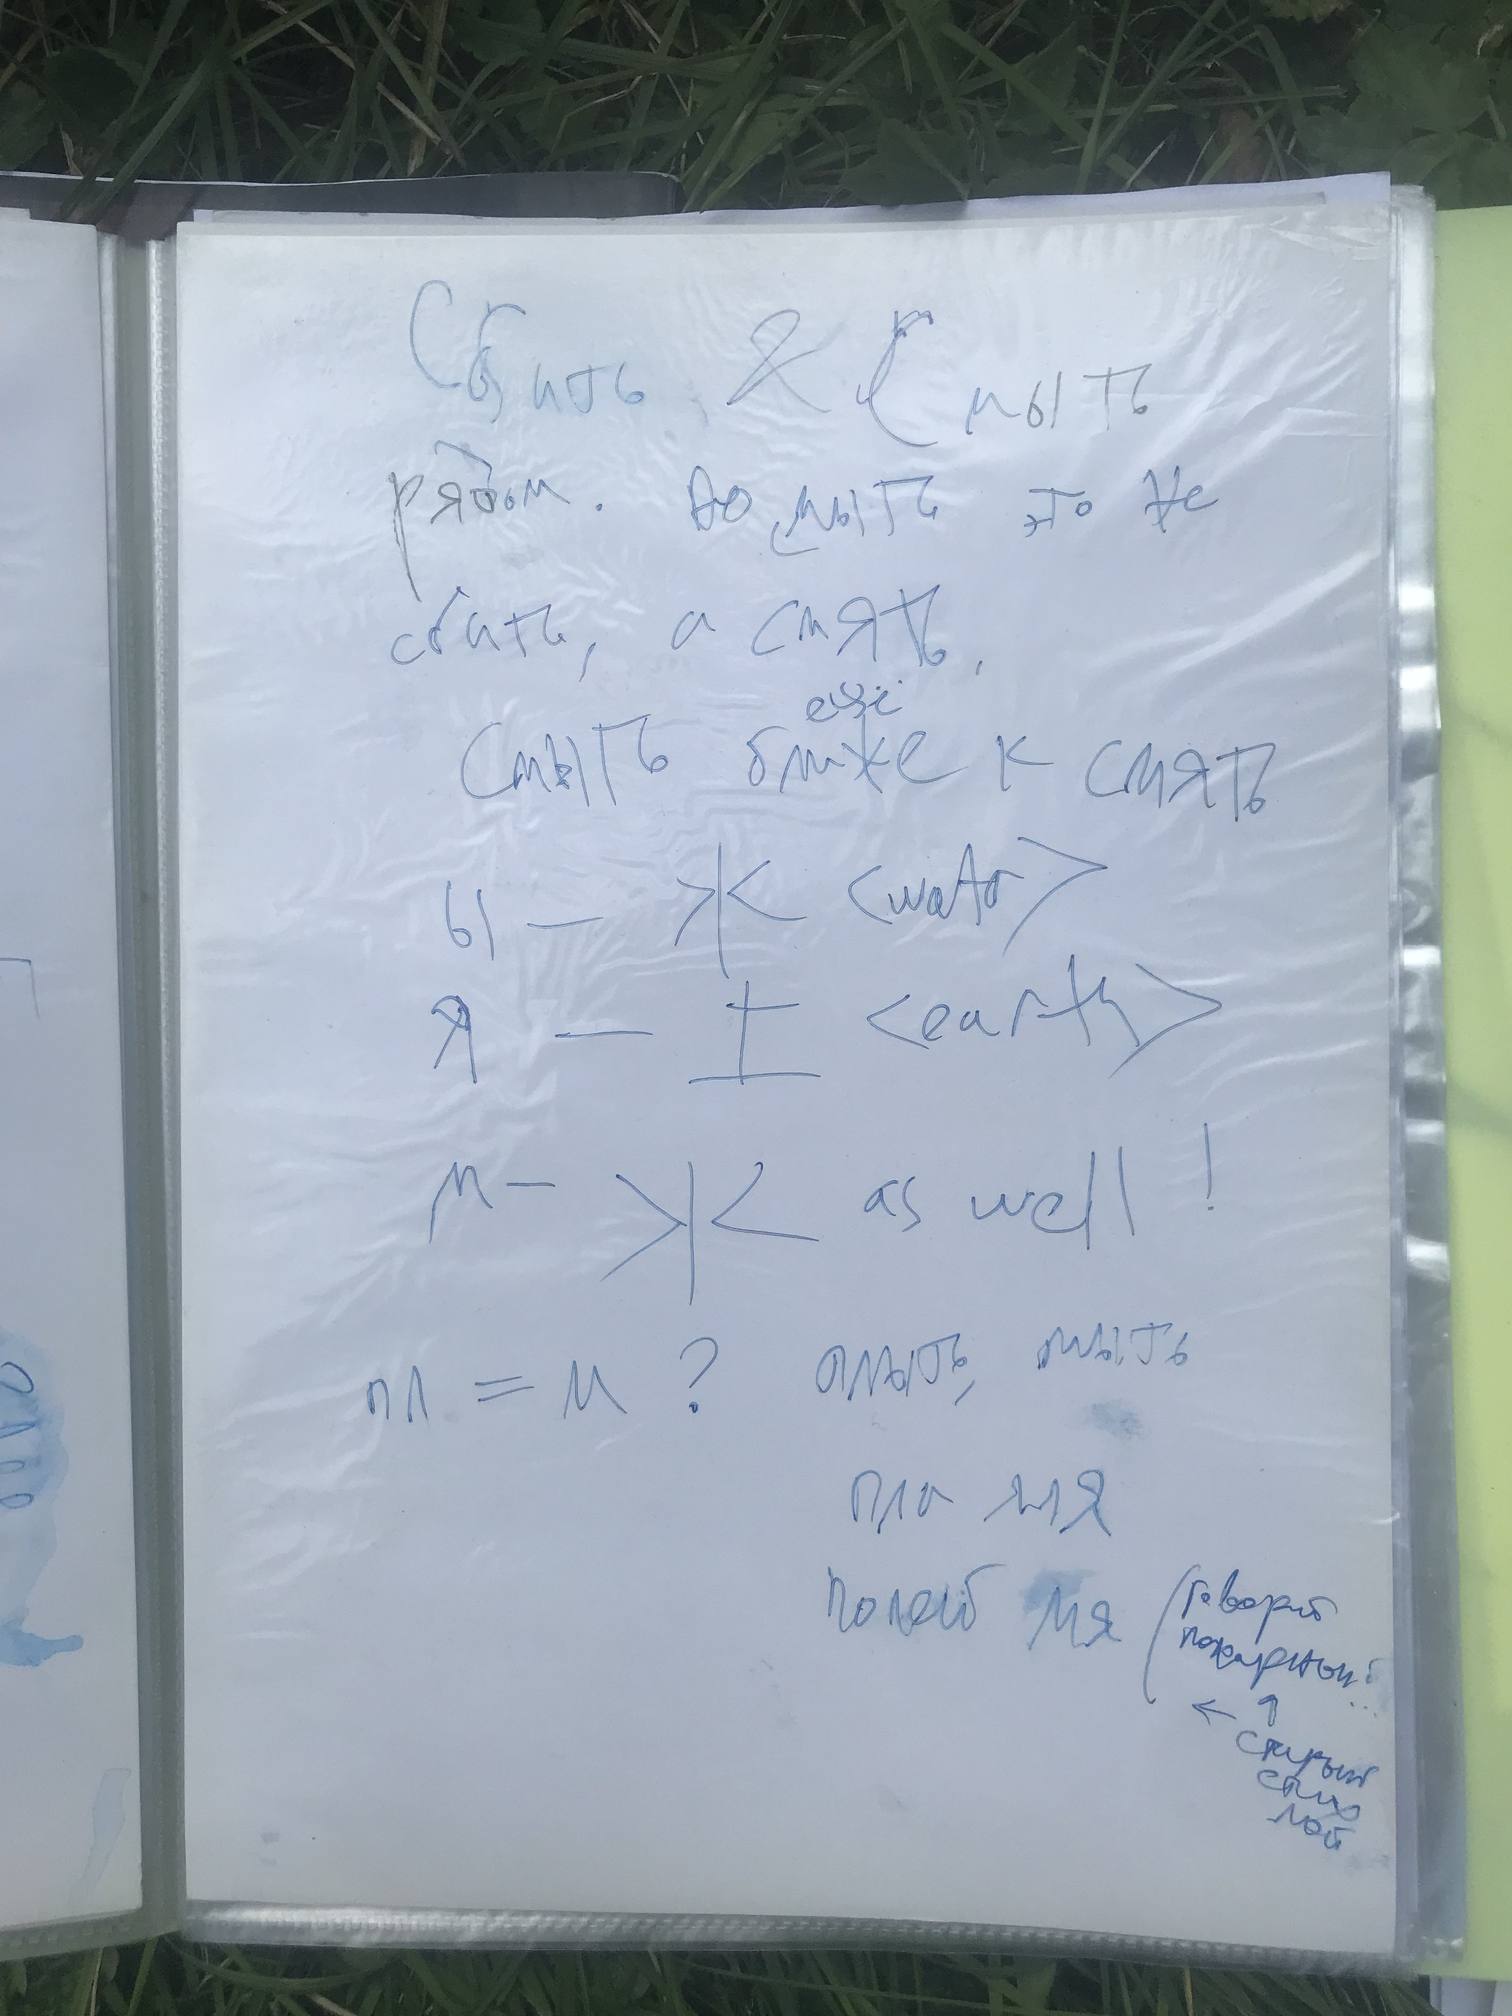 Сбить & Смыть
рядом. Но смыть это не
сбить, а смять.
ещё
Смыть ближе к смять
ы — 水 <water>
Я — 土 <earth>
м — 水 as well!
пл = м ? плыть, мыть
пла мя
полей мя (говорит
пожарный...
← ↑
старый
стих
мой